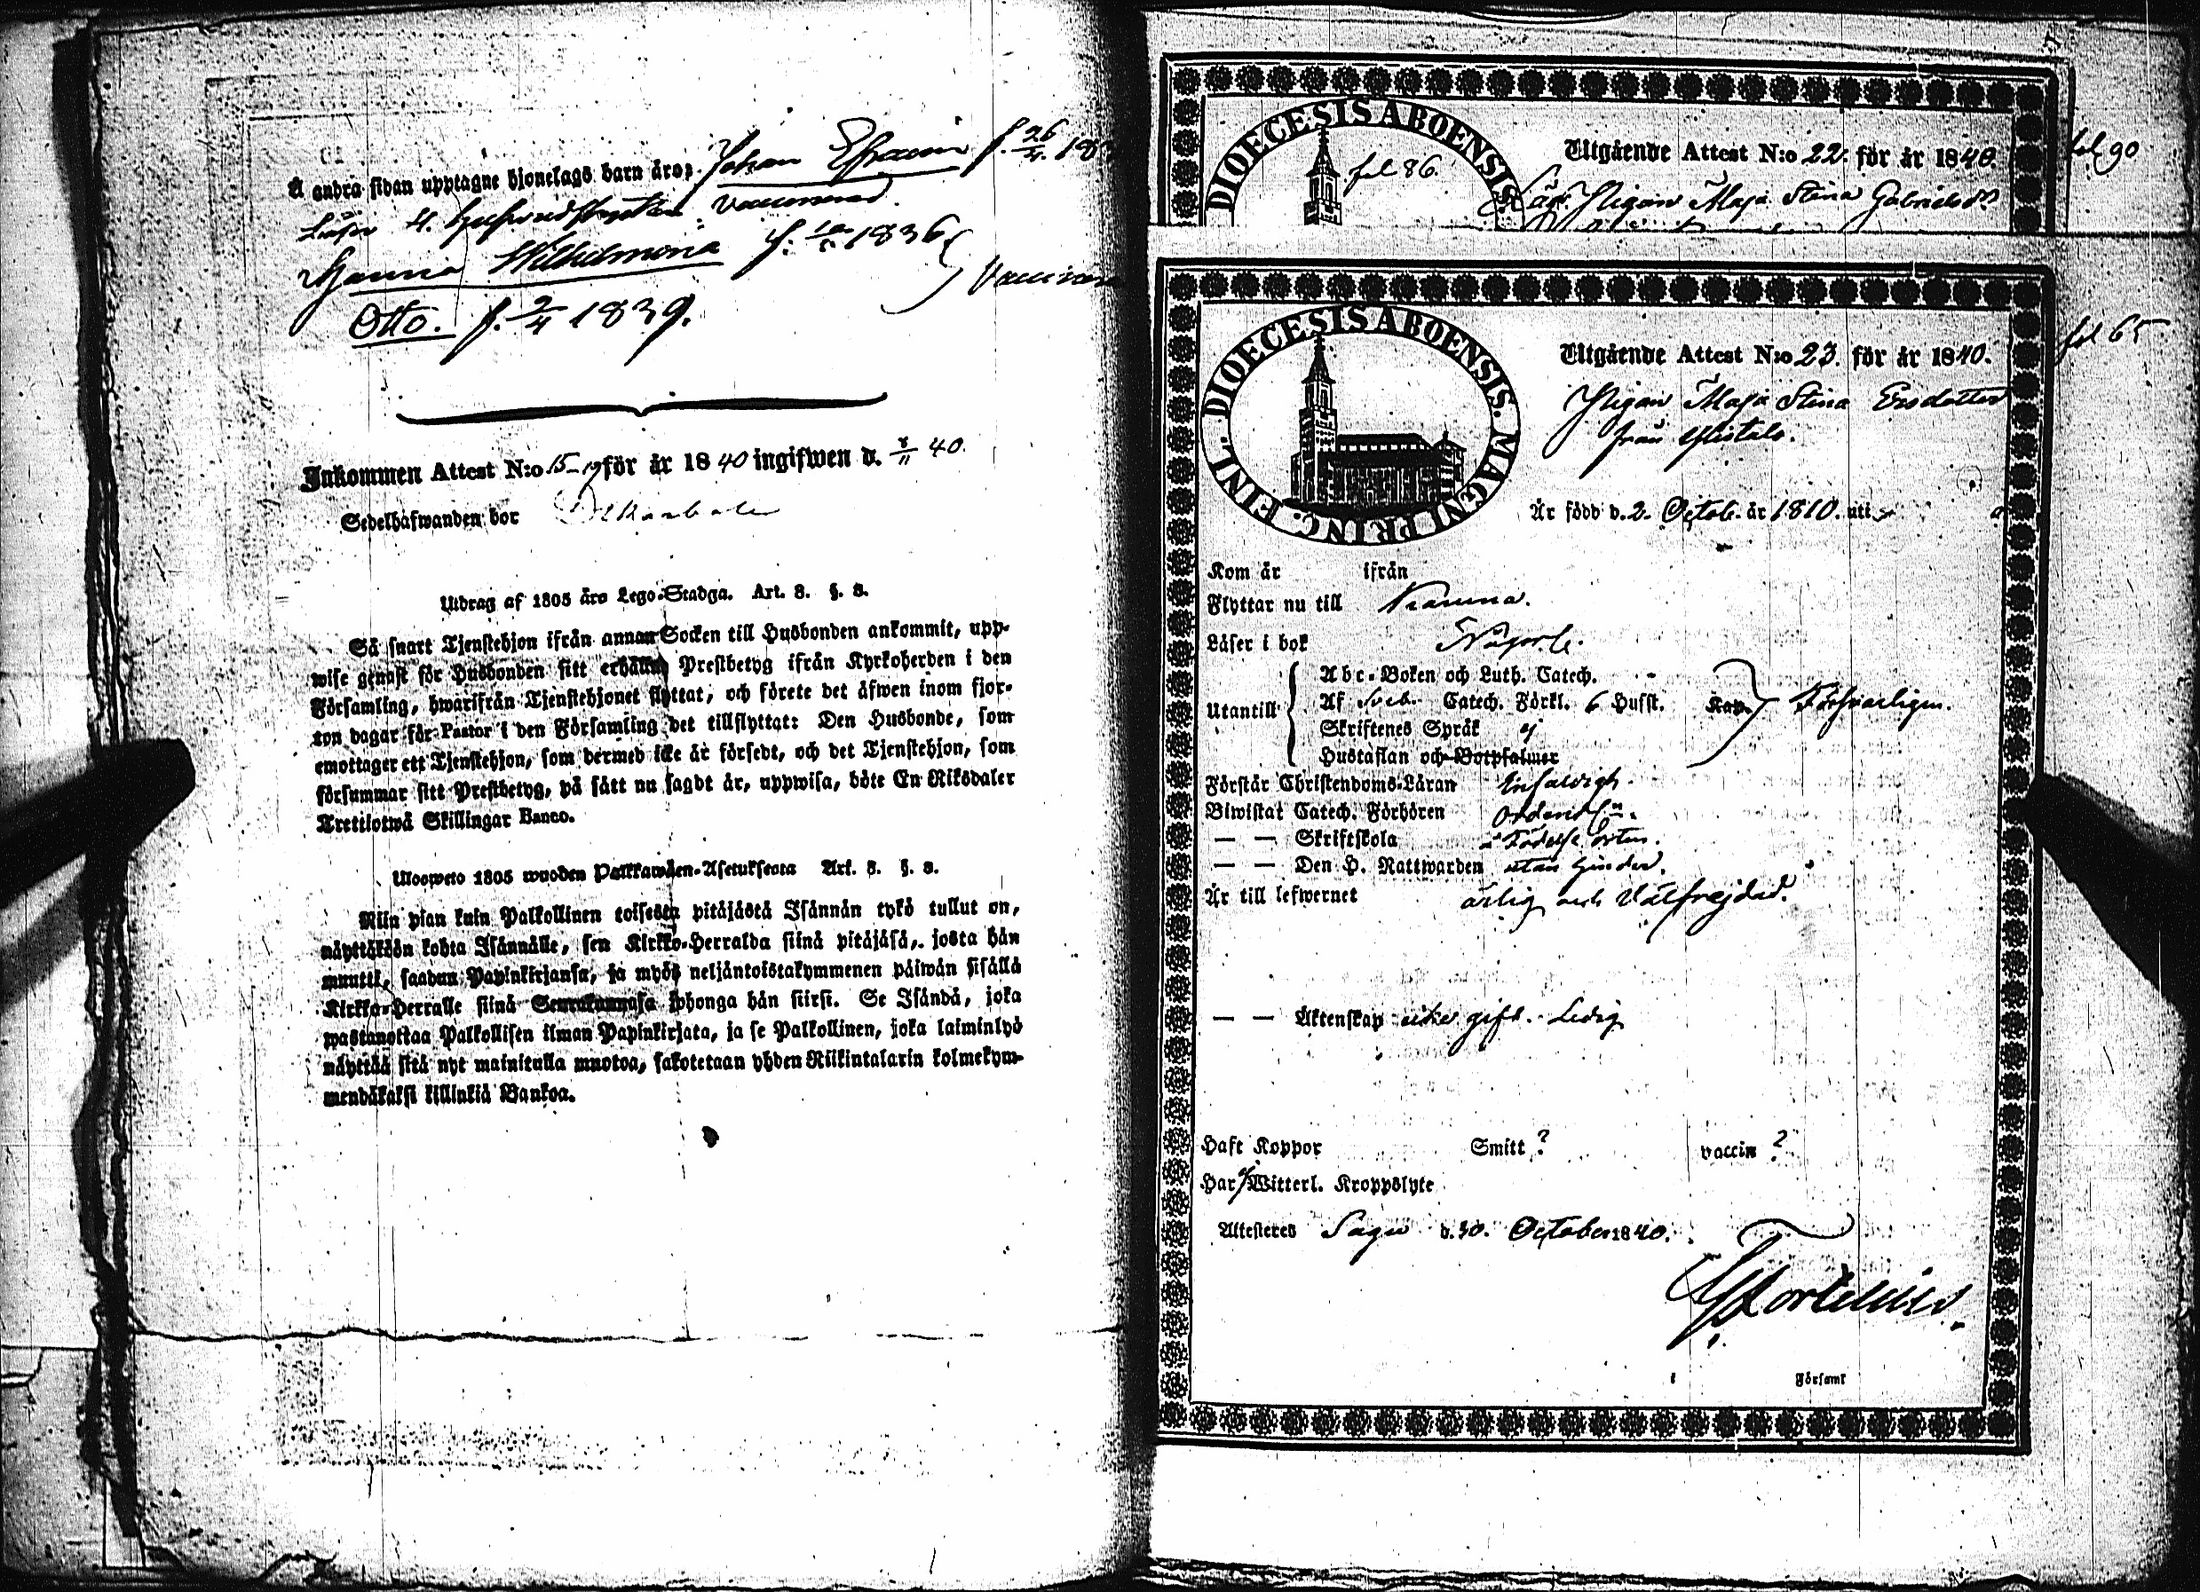 Å andra sidan upptagne hjonelags barn äro: Johan Efraim f. 26/4 18
Läser vaccinerad.
Hanna Wilhelmina f. 1836
Otto. f. 2/4 1839.
Inkommen Attest N:o 15 för år 1840 ingifwen d. 8/11 40.
Sedelhafwanden bor
Utdrag af 1805 års Lego-Stadga. Art. 3. §. 8.
Så snart Tjenstehjon ifrån annan Socken till Husbonden ankommit, upp-
wise genast för Husbonden sitt erhållna Prestbetyg ifrån Kyrkoherden i den
Församling, hwarifrån Tjenstehjonet flyttat, och förete det äfwen inom fjor-
ton dagar för Pastor i den Församling det tillflyttat: Den Husbonde, som
emottager ett Tjenstehjon, som dermed icke är försedt, och det Tjenstehjon, som
försummar sitt Prestbetyg, på sätt nu sagdt är, uppwisa, böte En Riksdaler
Trettiotwå Skillingar Banco.
Uloosweto 1805 wuoden Palkkawäen-Asetuksesta Art. 3. §. 8.
Niin pian kuin Palkollinen toisesta pitäjästä Isännän tykö tullut on,
näyttäkään kohta Isännälle, sen Kirkko-Herralda siinä pitäjäsä, josta hän
muutti, saadun Papinkirjansa, ja myös neljäntoistakymmenen päiwän sisällä
Kirkko-Herralle siinä Seurakunnasa johonga hän siirsi. Se Isändä, joka
wastanottaa Palkollisen ilman Papinkirjata, ja se Palkollinen, joka laiminlyö
näyttää sitä nyt mainitulla muotoa, sakotetaan yhden Riikintalarin kolmekym-
mendäkaksi killinkiä Bankoa.
DIOECESIS ABOENSIS.
fol 86
Utgående Attest N:o 22 för år 1840.
Pigan Maja Stina Gabrielsdr
fol 90
DIOECESIS ABOENSIS. MAGNI PRINC. FINL.
Utgående Attest N:o 23. för år 1840.
Pigan Maja Stina Ersdotter
från
fol 65
Är född d. 2. Octob. år 1810. uti
Kom år ifrån
Flyttar nu till
Läser i bok Någorl.
Utantill
Abc-Boken och Luth. Catech.
Af Sveb. Catech. Förkl. 6 Hufst. Kap. Försvarligen.
Skriftenes Språk ej
Hustaflan och Botpsalmer
Förstår Christendoms-Läran Enfaldigt.
Biwistat Catech. Förhören ordentl:n.
— — Skriftskola i Födelse orten.
— — Den H. Nattwarden utan hinder.
Är till lefwernet ärlig och välfrejdad.
— — Äktenskap icke gift. Ledig
Haft Koppor Smitt ? vaccin ?
Har ej Witterl. Kroppslyte
Attesteres Sagu d. 30. October 1840.
Församl